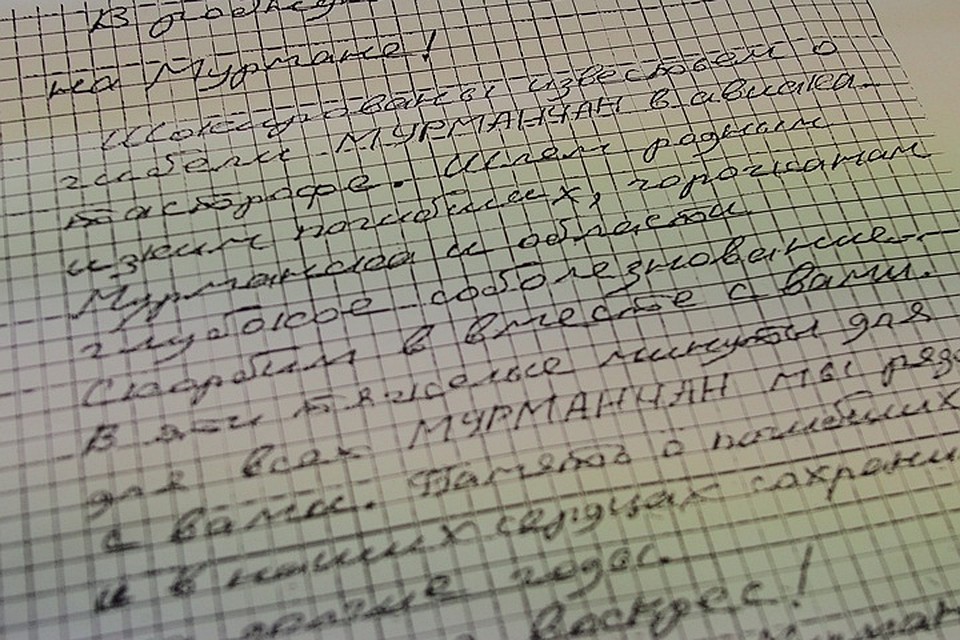 на Мурмане!
Шокированы известием о
гибели МУРМАНЧАН в авиака-
тастрофе. Шлем родным
и зким погибших, горожанам
Мурманска и области
глубокое соболезнование.
Скорбим в вместе с вами.
В эти тяжелые минуты для
для всех МУРМАНЧАН мы ряд
с вами. Память о погибших
и в наших сердцах сохрани
долгие годы.
Воскрес!